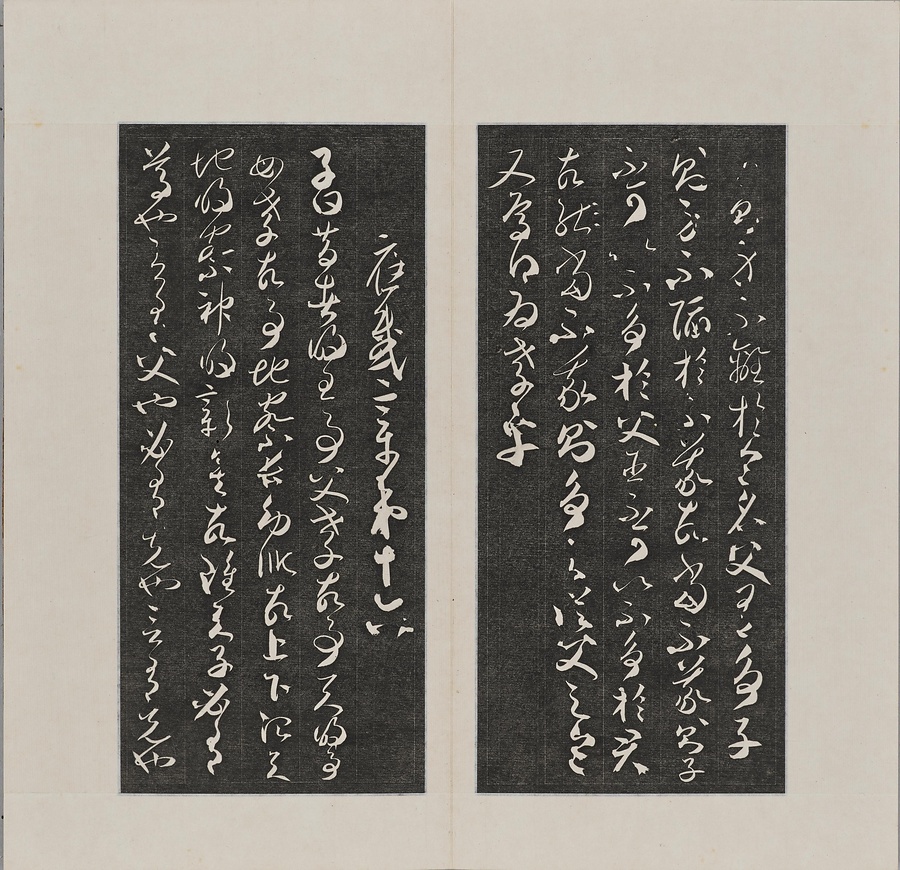 則身不離於令名父有爭子
則身不陷於不義故當不義則子
不可以不爭於父臣不可以不爭於君
故當不義則爭之從父之令
又焉得為孝乎
應感章第十六
子曰昔者明王事父孝故事天明事
母孝故事地察長幼順故上下治天
地明察神明彰矣故雖天子必有
尊也言有父也必有先也言有兄也